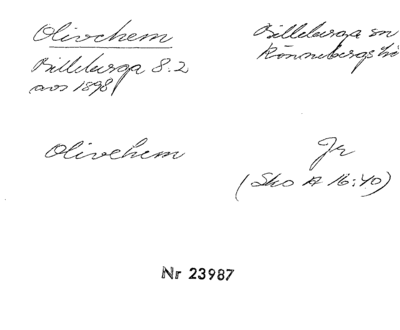 Olivehem
Billeberga sn
Rönnebergs hd
Billeberga 8.2
avs 1898
Olivehem
Jr
(Sko A 16:40)
Nr 23987